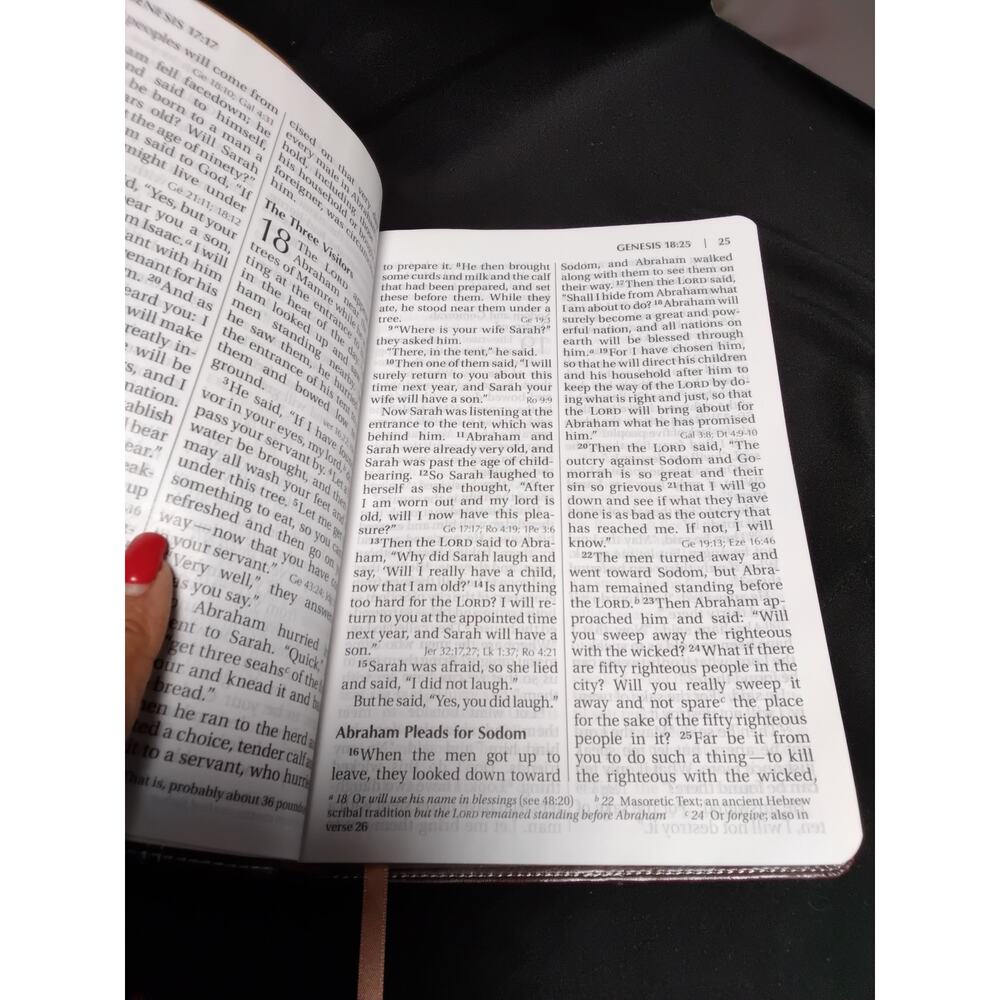 GENESIS 17:17
peoples will come from
Ge 18:10; Gal 4:31
am fell facedown; he
nd said to himself,
be born to a man a
ars old? Will Sarah
the age of ninety?"
m said to God, "If
might live under
Ge 21:11; 18:12
d, "Yes, but your
ear you a son,
m Isaac.a I will
ant with him
venant for his
20And as
eard you: I
will make
reatly in-
will be
s, and I
nation.
ablish
bear
ear."
eak-
up
cised on that very
every male in Abraha
hold, including tho
his household or bo
foreigner, was circum
him.
The Three Visitors
18 The LORD appe
Abraham nea
trees of Mamre while
ting at the entrance to
in the heat of the da
ham looked up and
men standing nearby
he saw them, he hurried
the entrance of his tent
them and bowed low
ground.
3He said, "If I have fo
vor in your eyes, my lord,
pass your servant by. 4Let a
water be brought, and then
may all wash your feet and
under this tree. 5Let me get
something to eat, so you can
refreshed and then go on
way—now that you have co
your servant."
"Very well," they answe
as you say."
Abraham hurried
ent to Sarah. "Quick,"
get three seahsc of the
our and knead it and b
bread."
hen he ran to the herd a
ted a choice, tender calf a
it to a servant, who hurrie
That is, probably about 36 pounds
GENESIS 18:25 | 25
to prepare it. 8He then brought
some curds and milk and the calf
that had been prepared, and set
these before them. While they
ate, he stood near them under a
tree. Ge 19:3
9"Where is your wife Sarah?"
they asked him.
"There, in the tent," he said.
10Then one of them said, "I will
surely return to you about this
time next year, and Sarah your
wife will have a son." Ro 9:9
Now Sarah was listening at the
entrance to the tent, which was
behind him. 11Abraham and
Sarah were already very old, and
Sarah was past the age of child-
bearing. 12So Sarah laughed to
herself as she thought, "After
I am worn out and my lord is
old, will I now have this plea-
sure?" Ge 17:17; Ro 4:19; 1Pe 3:6
13Then the LORD said to Abra-
ham, "Why did Sarah laugh and
say, 'Will I really have a child,
now that I am old?' 14Is anything
too hard for the LORD? I will re-
turn to you at the appointed time
next year, and Sarah will have a
son." Jer 32:17,27; Lk 1:37; Ro 4:21
15Sarah was afraid, so she lied
and said, "I did not laugh."
But he said, "Yes, you did laugh."
Abraham Pleads for Sodom
16When the men got up to
leave, they looked down toward
Sodom, and Abraham walked
along with them to see them on
their way. 17Then the LORD said,
"Shall I hide from Abraham what
I am about to do? 18Abraham will
surely become a great and pow-
erful nation, and all nations on
earth will be blessed through
him.a 19For I have chosen him,
so that he will direct his children
and his household after him to
keep the way of the LORD by do-
ing what is right and just, so that
the LORD will bring about for
Abraham what he has promised
him." Gal 3:8; Dt 4:9-10
20Then the LORD said, "The
outcry against Sodom and Go-
morrah is so great and their
sin so grievous 21that I will go
down and see if what they have
done is as bad as the outcry that
has reached me. If not, I will
know." Ge 19:13; Eze 16:46
22The men turned away and
went toward Sodom, but Abra-
ham remained standing before
the LORD.b 23Then Abraham ap-
proached him and said: "Will
you sweep away the righteous
with the wicked? 24What if there
are fifty righteous people in the
city? Will you really sweep it
away and not sparec the place
for the sake of the fifty righteous
people in it? 25Far be it from
you to do such a thing—to kill
the righteous with the wicked,
a 18 Or will use his name in blessings (see 48:20) b 22 Masoretic Text; an ancient Hebrew
scribal tradition but the LORD remained standing before Abraham c 24 Or forgive; also in
verse 26